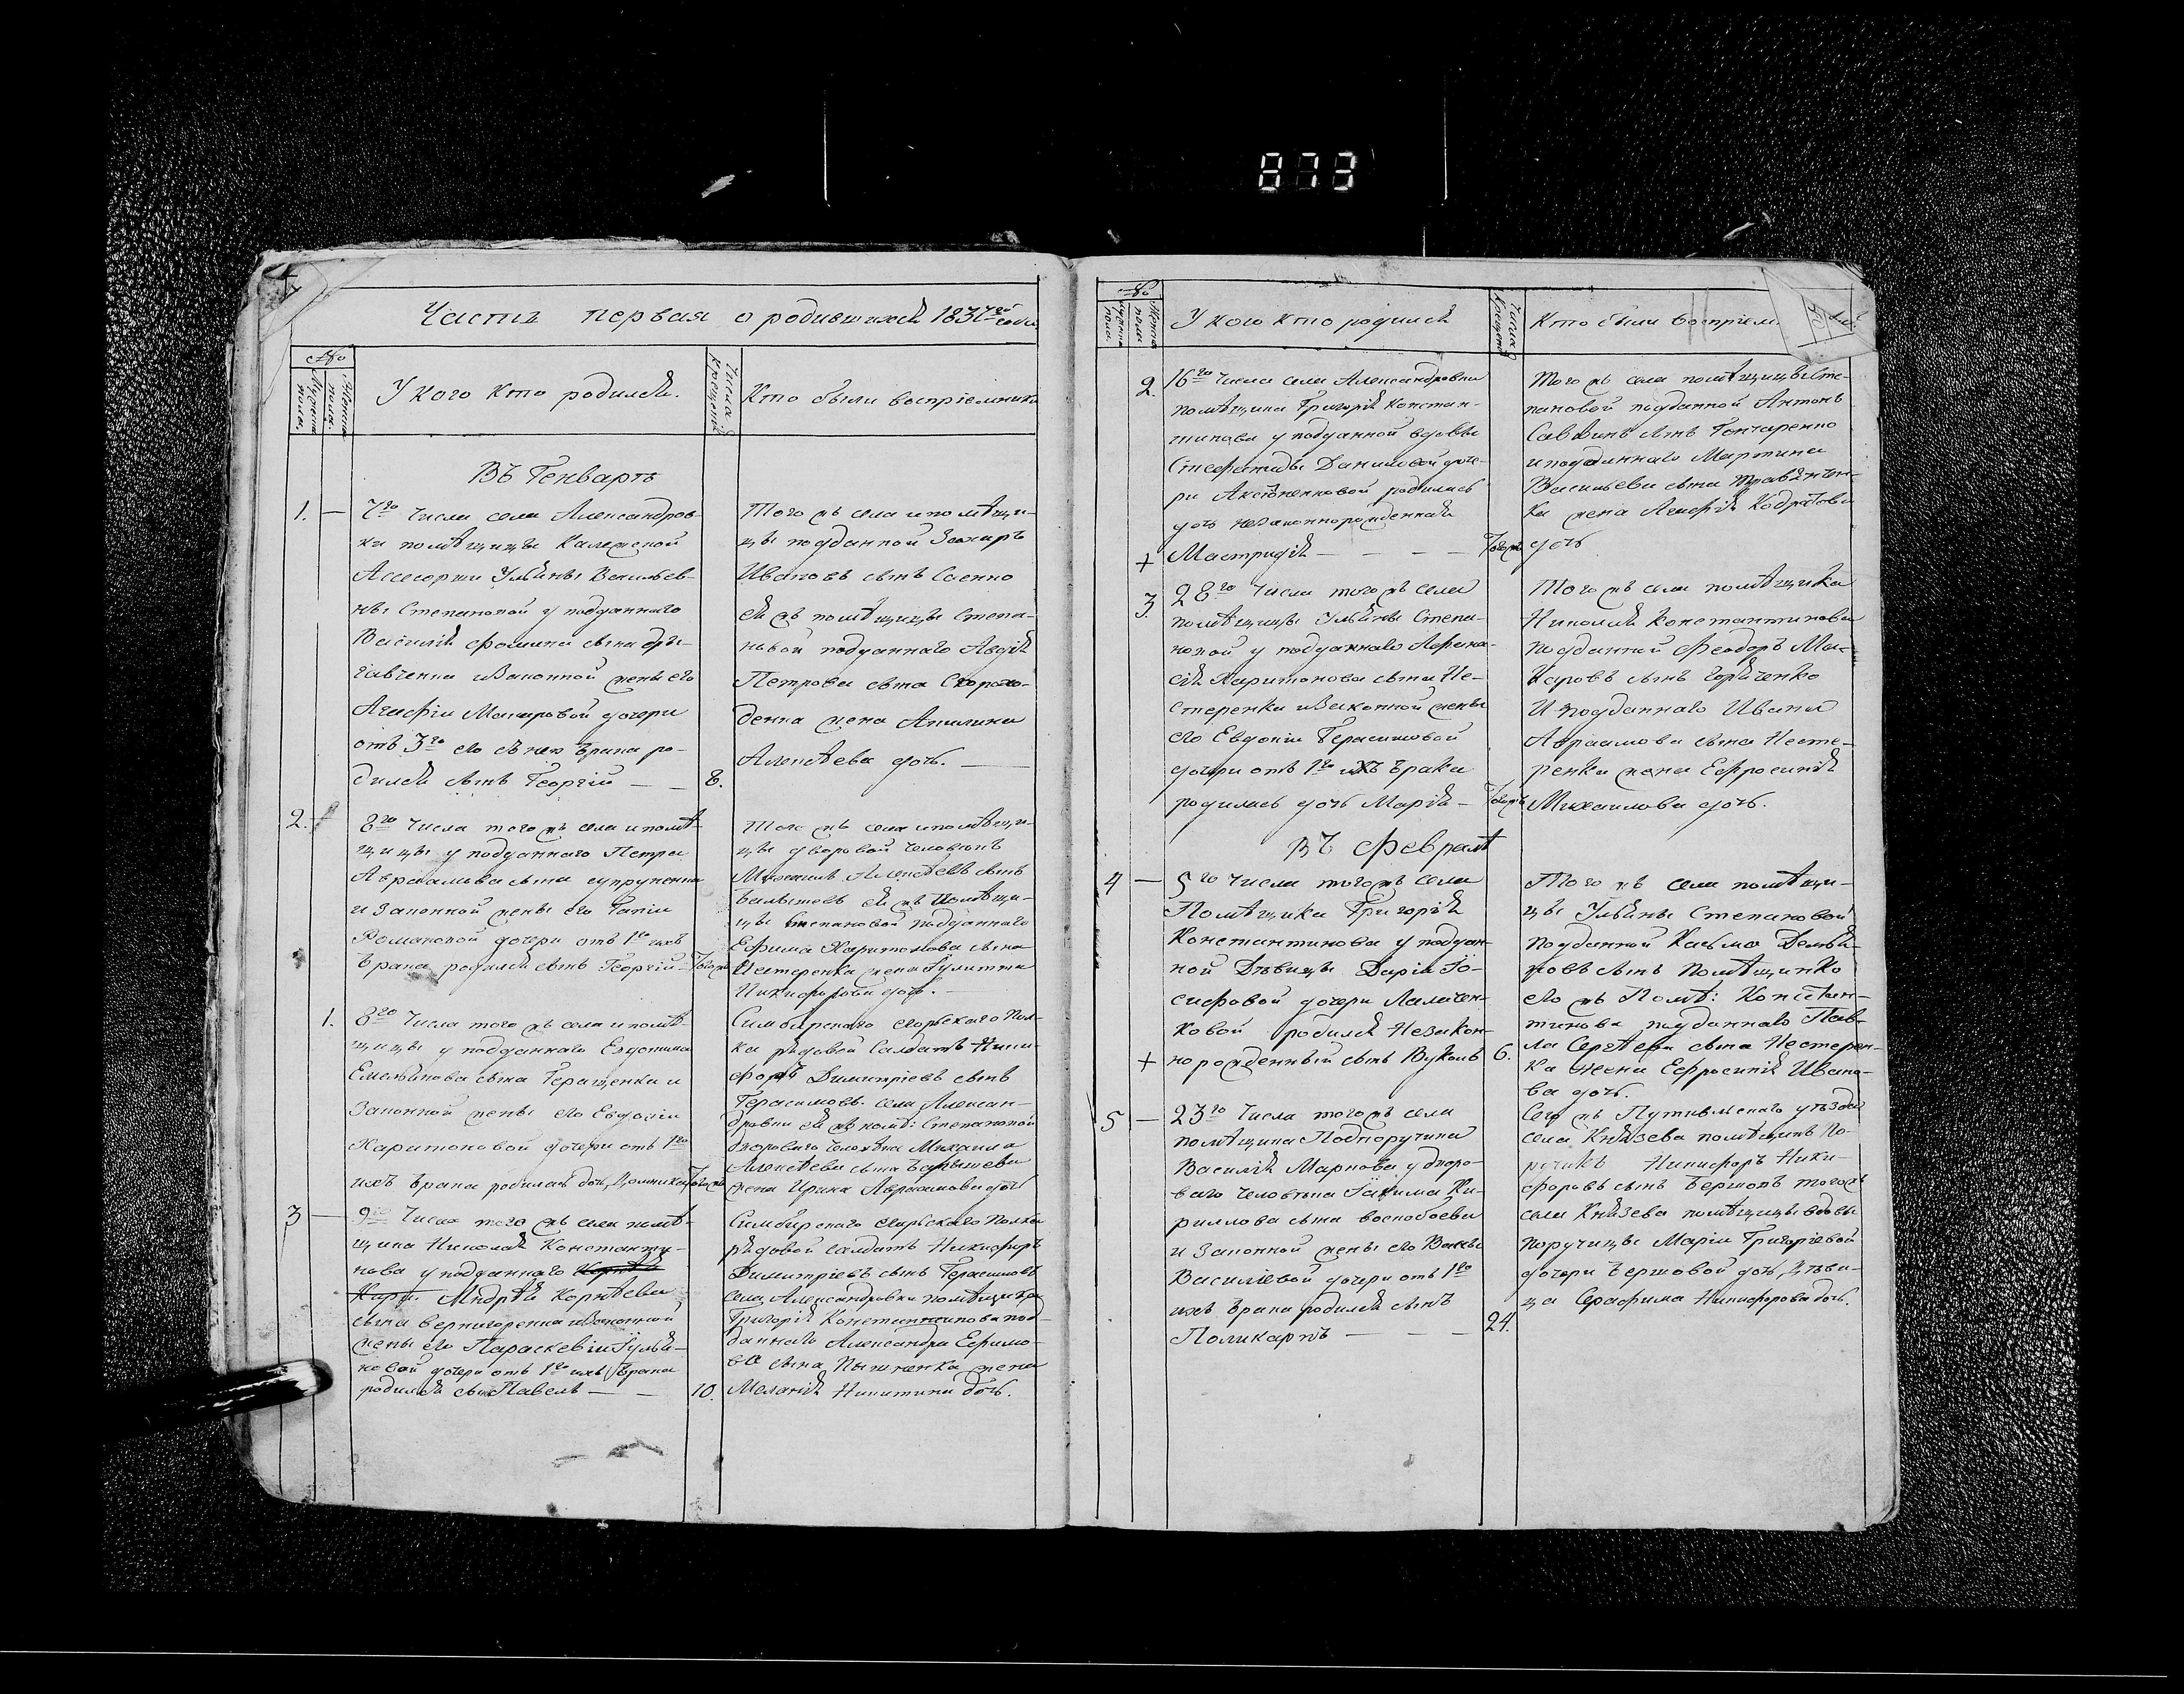 873
Часть первая о родившихся 1837го года
№
Мужеска пола.
Женска пола.
У кого кто родился.
Числа крещения
Кто были воспріемники
Въ Генварѣ
1. — 7го числа села Александров-
ки помѣщицы Калежской
Ассесорши Ульяны Васильев-
ны Степановой у подданнаго
Василія Фомина сына
и законной жены его
Агафіи Макаровой дочери
отъ 3го его съ нею брака ро-
дился сынъ Георгій — — 8.
Того жъ села и помѣщи-
цы подданной Захаръ
Ивановъ сынъ Саенко
ея жъ помѣщицы Степа-
новой подданнаго Авдія
Петрова сына Скорохо-
денка жена Акилина
Алексѣева дочь. —
2. 8го числа того жъ села и помѣ-
щицы у подданнаго Петра
Авраамова сына Супруненка
и законной жены его Гапіи
Романовой дочери отъ 1го ихъ
брака родился сынъ Георгій — Тогожъ
Того жъ села и помѣщи-
цы дворовой человѣкъ
Михаилъ Алексѣевъ сынъ
ея жъ помѣщи-
цы Степановой подданнаго
Ефима Харитонова сына
Нестеренка жена Гулитта
Никифорова дочь. —
1. 8го числа того жъ села и помѣ-
щицы у подданнаго Евдокима
Емельянова сына Геращенка и
законной жены его Евдокіи
Харитоновой дочери отъ 1го
ихъ брака родилась дочь Домникія Тогожъ
Симбирскаго егорьскаго пол-
ка рядовой салдатъ Ники-
форъ Димитріевъ сынъ
Герасимовъ села Алексан-
дровки ея жъ помѣ: Степановой
дворового человѣка Михаила
Алексѣева сына
жена Ирина Авраамова дочь
3 — 9го числа того жъ села помѣ-
щика Николая Константи-
нова у подданнаго
Андрѣя Корнѣева
сына Вернигоренка и законной
жены его Параскевіи Гулья-
новой дочери отъ 1го ихъ брака
родился сынъ Павелъ — — 10.
Симбирскаго егорьскаго полка
рядовой салдатъ Никифоръ
Димитріевъ сынъ Герасимовъ
села Александровки помѣщика
Григорія Константинова под-
даннаго Александра Ефимо-
ва сына жена
Меланія Никитина дочь.
№
Мужеска пола.
Женска пола
У кого кто родился
Числа крещенія
Кто были воспріем.
2. 16го числа села Александровки
помѣщика Григорія Констан-
тинова у подданной вдовы
Стефаниды Даниловой доче-
ри Аксюненковой родилась
дочь незаконнорожденная
+ Мастридія — — — — Тогожъ
Того жъ села помѣщицы Сте-
пановой подданной Антонъ
Саввинъ сынъ Гончаренко
и подданнаго Мартина
Васильева сына
ка жена Агафія Кодратова
дочь
3. 28го числа того жъ села
помѣщицы Ульяны Степа-
новой у подданнаго Афана-
сія Харитонова сына Не-
стеренка и законной жены
его Евдокіи Герасимовой
дочери отъ 1го ихъ брака
родилась дочь Марія — Тогожъ
Того жъ села помѣщика
Николая Константинова
подданный Феодоръ Ма-
каровъ сынъ Горяченко
и подданнаго Ивана
Авраамова сына Несте-
ренка жена Ефросинія
Михаилова дочь.
Въ Февралѣ
4 — 5го числа того жъ села
Помѣщика Григорія
Константинова у поддан-
ной дѣвицы Даріи Іо-
сифовой дочери Лалачен-
ковой родился незакон-
+ но рожденный сынъ Вуколъ 6.
Того жъ села помѣщи-
цы Ульяны Степановой
подданной Касьма Демья-
новъ сынъ
его жъ Помѣ: Констан-
тинова подданнаго Пав-
ла Сергѣева сына Нестерен-
ка жена Ефросинія Ивано-
ва дочь.
5 — 23го числа того жъ села
помѣщика Подпоручика
Василія Маркова у дворо-
ваго человѣка Іакима Ки-
риллова сына
и законной жены его
Василіевой дочери отъ 1го
ихъ брака родился сынъ
Поликарпъ — — — 24.
Сего жъ Путивльскаго уѣзда
села Князева помѣщикъ По-
ручикъ Никифоръ Ники-
форовъ сынъ Бершовъ того жъ
села Князева помѣщицы вдовы
поручицы Маріи Григоріевой
дочери Бершовой дочь, дѣви-
ца Серафима Никифорова дочь.